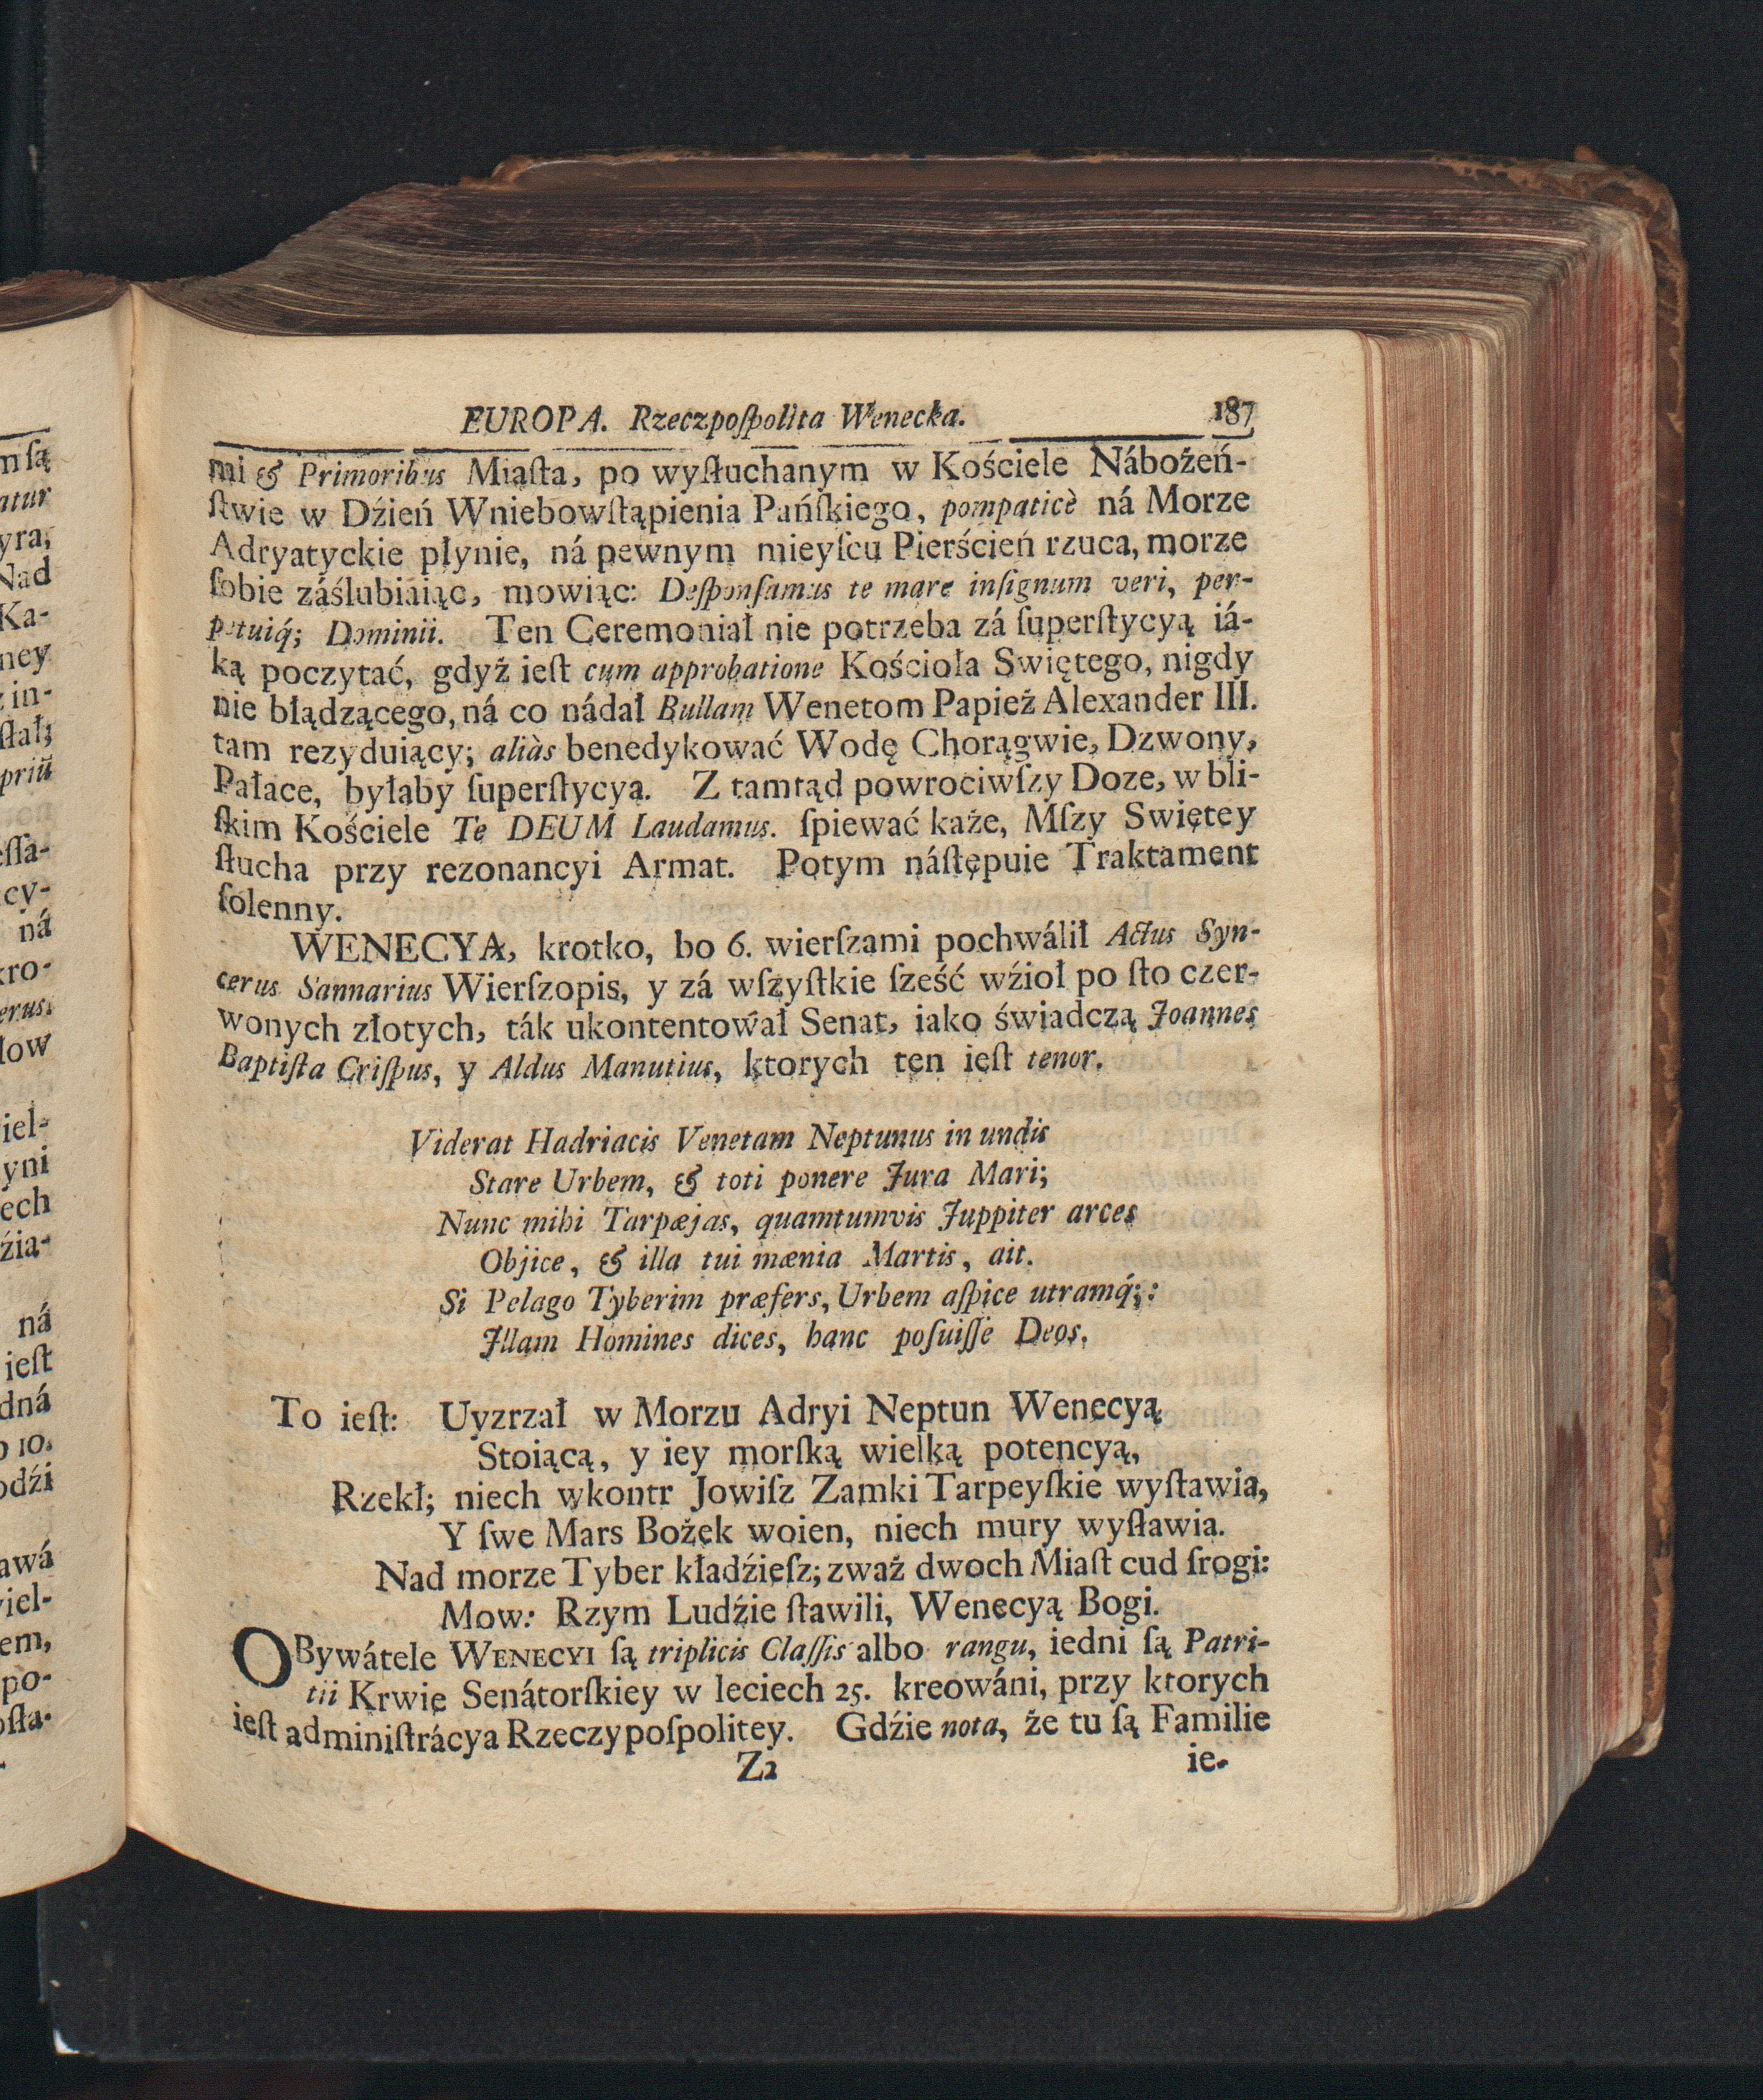 EUROPA. Rzeczpoſpolita Wenecka. 187
mi & Primoribus Miaſta, po wyſłuchanym w Kościele Nábożeń-
ſtwie w Dźień Wniebowſtąpienia Pańſkiego, pompaticè ná Morze
Adryatyckie płynie, ná pewnym mieyſcu Pierścień rzuca, morze
ſobie záślubiáiąc, mowiąc: Deſponſamus te mare inſignum veri, per-
petuiq́; Dominii. Ten Ceremoniał nie potrzeba zá ſuperſtycyą iá-
ką poczytać, gdyż ieſt cum approbatione Kościoła Swiętego, nigdy
nie błądzącego, ná co nádał Bullam Wenetom Papież Alexander III.
tam rezyduiący; aliàs benedykować Wodę Chorągwie, Dzwony,
Pałace, byłaby ſuperſtycya. Z tamtąd powrociwſzy Doze, w bli-
ſkim Kościele Te DEUM Laudamus. ſpiewać każe, Mſzy Swiętey
ſłucha przy rezonancyi Armat. Potym náſtępuie Traktament
ſolenny.
WENECYA, krotko, bo 6. wierſzami pochwálił Actus Syn-
cerus Sannarius Wierſzopis, y zá wſzyſtkie ſześć wźioł po ſto czer-
wonych złotych, ták ukontentował Senat, iako świadczą Joannes
Baptiſta Criſpus, y Aldus Manutius, ktorych ten ieſt tenor.
Viderat Hadriacis Venetam Neptunus in undis
Stare Urbem, & toti ponere Jura Mari;
Nunc mihi Tarpæjas, quamtumvis Juppiter arces
Objice, & illa tui mænia Martis, ait.
Si Pelago Tyberim præfers, Urbem aſpice utramq́;:
Illam Homines dices, hanc poſuiſſe Deos.
To ieſt: Uyzrzał w Morzu Adryi Neptun Wenecyą
Stoiącą, y iey morſką wielką potencyą,
Rzekł; niech wkontr Jowiſz Zamki Tarpeyſkie wyſtawia,
Y ſwe Mars Bożek woien, niech mury wyſławia.
Nad morze Tyber kładźieſz; zważ dwoch Miaſt cud ſrogi:
Mow: Rzym Ludźie ſtawili, Wenecyą Bogi.
OBywátele WENECYI ſą triplicis Claſſis albo rangu, iedni ſą Patri-
tii Krwie Senátorſkiey w leciech 25. kreowáni, przy ktorych
ieſt adminiſtrácya Rzeczypoſpolitey. Gdźie nota, że tu ſą Familie
Z2 ie-